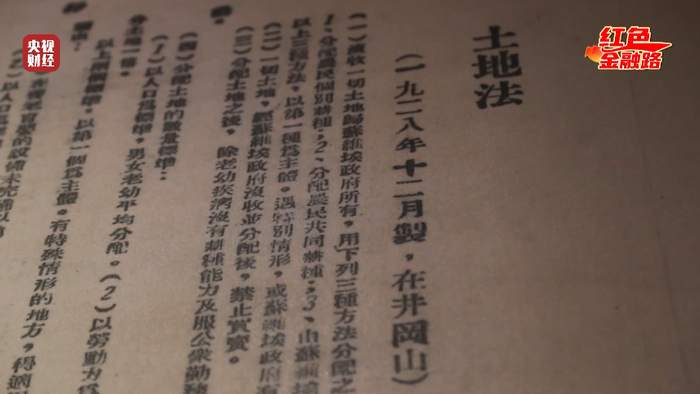 央视
财经
红色
金融路
土地法
(一九二八年十二月製，在井岡山)
(一)沒收一切土地歸蘇維埃政府所有，用下列三種方法分配之
1、分配農民個別耕種；2、分配農民共同耕種；3、由蘇維埃
以上三種方法，以第一種爲主體。遇特別情形，或蘇維埃政府有
(二)一切土地，經蘇維埃政府沒收並分配後，禁止買賣。
(三)分配土地之後，除老幼疾病沒有耕種能力及服公衆勤務
(四)分配土地的數量標準：
(1)以人口爲標準，男女老幼平均分配。(2)以勞動力爲
以上兩個標準，以第一個爲主體。有特殊情形的地方，得適